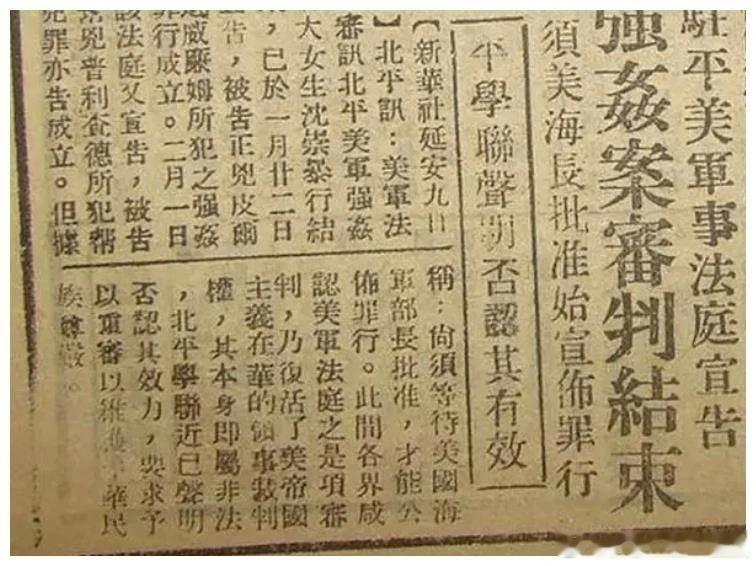 駐平美軍事法庭宣告
強姦案審判結束
須美海長批准始宣佈罪行
平學聯聲明否認其有效
【新華社延安九日
北平訊：美軍法
審訊北平美軍強姦
大女生沈崇暴行結
，已於一月廿二日
告，被告正兇皮爾
遜威廉姆所犯之強姦
罪行成立。二月一日
該法庭又宣告，被告
幫兇普利查德所犯幫
犯罪亦告成立。但據
稱：尚須等待美國海
軍部長批准，才能公
佈罪行。此間各界咸
認美軍法庭之是項審
判，乃復活了美帝國
主義在華的領事裁判
權，其本身即屬非法
，北平學聯近已聲明
否認其效力，要求予
以重審以維護華民
族尊嚴。